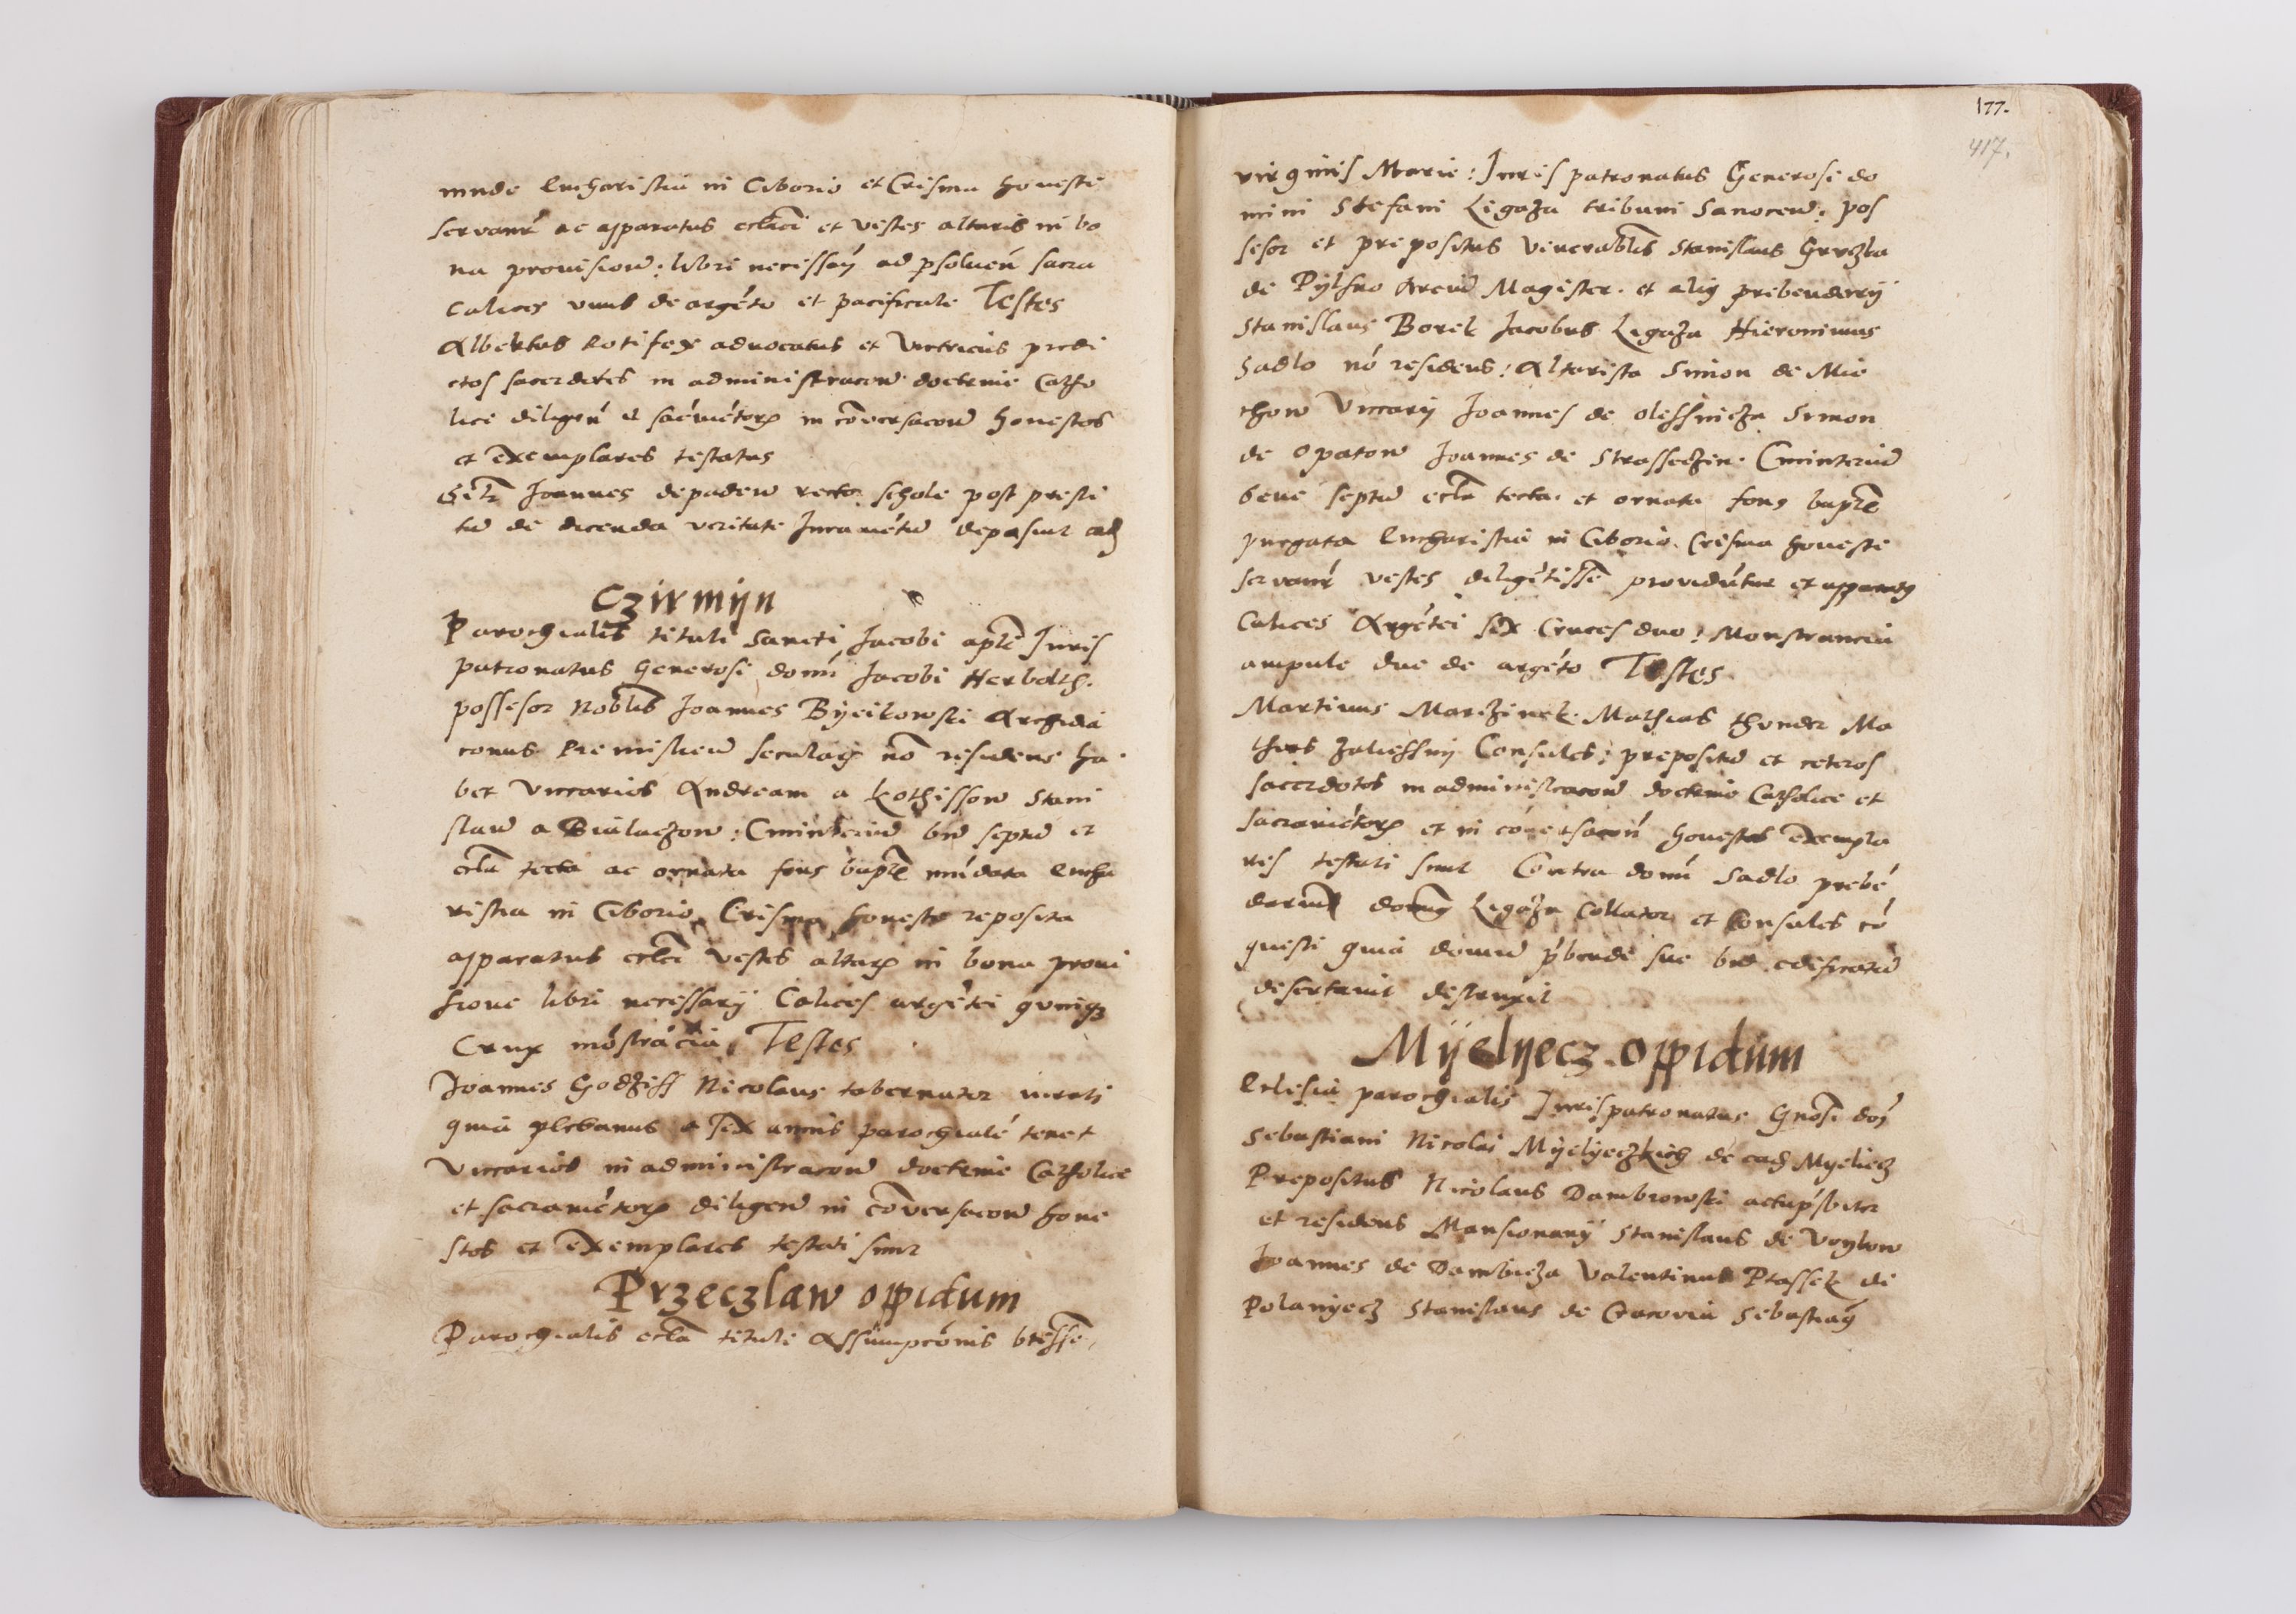 munde Eucharistia in Ciborio et Crisma honeste
servant᷑ ac apparatus ecl̃iaci et vestes altaris in bo
na provision̄: libri necessarij ad p̱soluen̄ sacra
Calices unus de argẽto et pacificale Testes
Albertus Rotifex advocatus et vitricus predi
ctos sacerdotes in administracion̄ doctrine Catho
lice diligen̄ et sacr̃amẽtoꝝ in cõversacion̄ honestos
et exemplares testatus
Joannes de rector schole post presti
tu̅ de dicenda veritate Juramẽtu̅ deposuit
Czirmijn
Parochialis tituli Sancti Jacobi apl̃i Juris
patronatus Generosi domĩ Jacobi Herbolth.
possesor Nobilis Joannes Byeikowski Archidia
conus Premislien̄ secularis nõ residens ha
bet vicarios Andream a Kothissow Stani
slau̅ a Bialaczow: Cminteriu̅ bñ septu̅ et
ecl̃ia tecta ac ornata fons bapt̃i mũdata Eucha
ristia in Ciborio Crisma honeste reposita
apparatus ecl̃iaci vestes altarꝝ in bona provi
sione libri necessarij Calices argẽtei quinqꝫ
Crux mõstrãcia, Testes
Joannes Godziss Nicolaus tabernator iurati
quia plebanus a sex annis parochialẽ tenet
vicarios in administracion̄ doctrine Catholice
et sacramẽtoꝝ diligen̄ in cõversacion̄ hone
stos et exemplares testati sunt
Przeczlaw oppidum
Parochialis ecl̃ia tituli Assumpcõnis btẽsse
177.
417.
virginis Marie: Juris patronatus Generosi do
mini Stefani Ligaza tribuni Sanocen̄: pos
sesor et prepositus venerabilis Stanislaus Gruczka
de Pylsno Arciu̅ Magister. et alij prebendarij
Stanislaus Borek Jacobus Ligaza Hieronimus
Sadlo nõ residens: Altarista Simon de Mie
thow Vicarij Joannes de Olessnicza Simon
de Opatow Joannes de Strasseczin. Cminteriu̅
bene septu̅ ecl̃ia tecta et ornata fons bapt̃i
purgata Eucharistia in Ciborio. Crisma honeste
servant᷑ vestes diligẽtisse̅ providẽtur et apparatꝰ
Calices Argẽtei sex Cruces duo: Monstrancia
ampule due de argẽto Testes
Martinus Marczinek. Mathias thonder Ma
thias Zaliessny Consules; prepositu̅ et ceteros
sacerdotes in administracion̄ doctrine Catholice et
sacramẽtoꝝ et in cõversacion̄ honestos exempla
res testati sunt Contra domĩ Sadlo prebẽ
dariu̅ domĩnꝰ Ligaza Collator et Consules cõ
questi quia domu̅ p̱bende sue bñ edificatu̅
desertavit destruxit
Mijelijecz oppidum
Eclesia parochialis Jurispatronatus Gnõsi doĩ
Sebastiani Nicolai Myelyeczkich de ead̃ Myeliecz
Prepositus Nicolaus Dambrowski actu p̱sbiter
et residens Mansionarij Stanislaus de Voykow
Joannes de Dambicza Valentinus Ptassek de
Polanijecz Stanislaus de Cracovia Sebastianꝰ